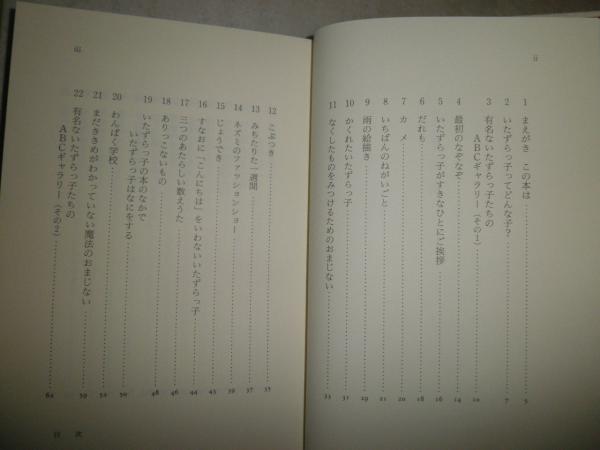 ii
1 まえがき この本は 5
2 いたずらっ子ってどんな子? 7
3 有名ないたずらっ子たちの
ABCギャラリー(その1) 10
4 最初のなぞなぞ 14
5 いたずらっ子がすきなひとにご挨拶 16
6 だれも 18
7 カメ 20
8 いちばんのねがいごと 21
9 雨の絵描き 29
10 かくれたいたずらっ子 31
11 なくしたものをみつけるためのおまじない 33
iii
12 こぶつき 35
13 みちたりた一週間 37
14 ネズミのファッションショー 39
15 じょうでき 43
16 すなおに「こんにちは」をいわないいたずらっ子 44
17 三つのあたらしい数えうた 46
18 ありっこないもの 48
19 いたずらっ子の本のなかで
いたずらっ子はなにをする
20 わんぱく学校
21 まだききめがわかっていない魔法のおまじない 59
22 有名ないたずらっ子たちの
ABCギャラリー(その2) 62
目次